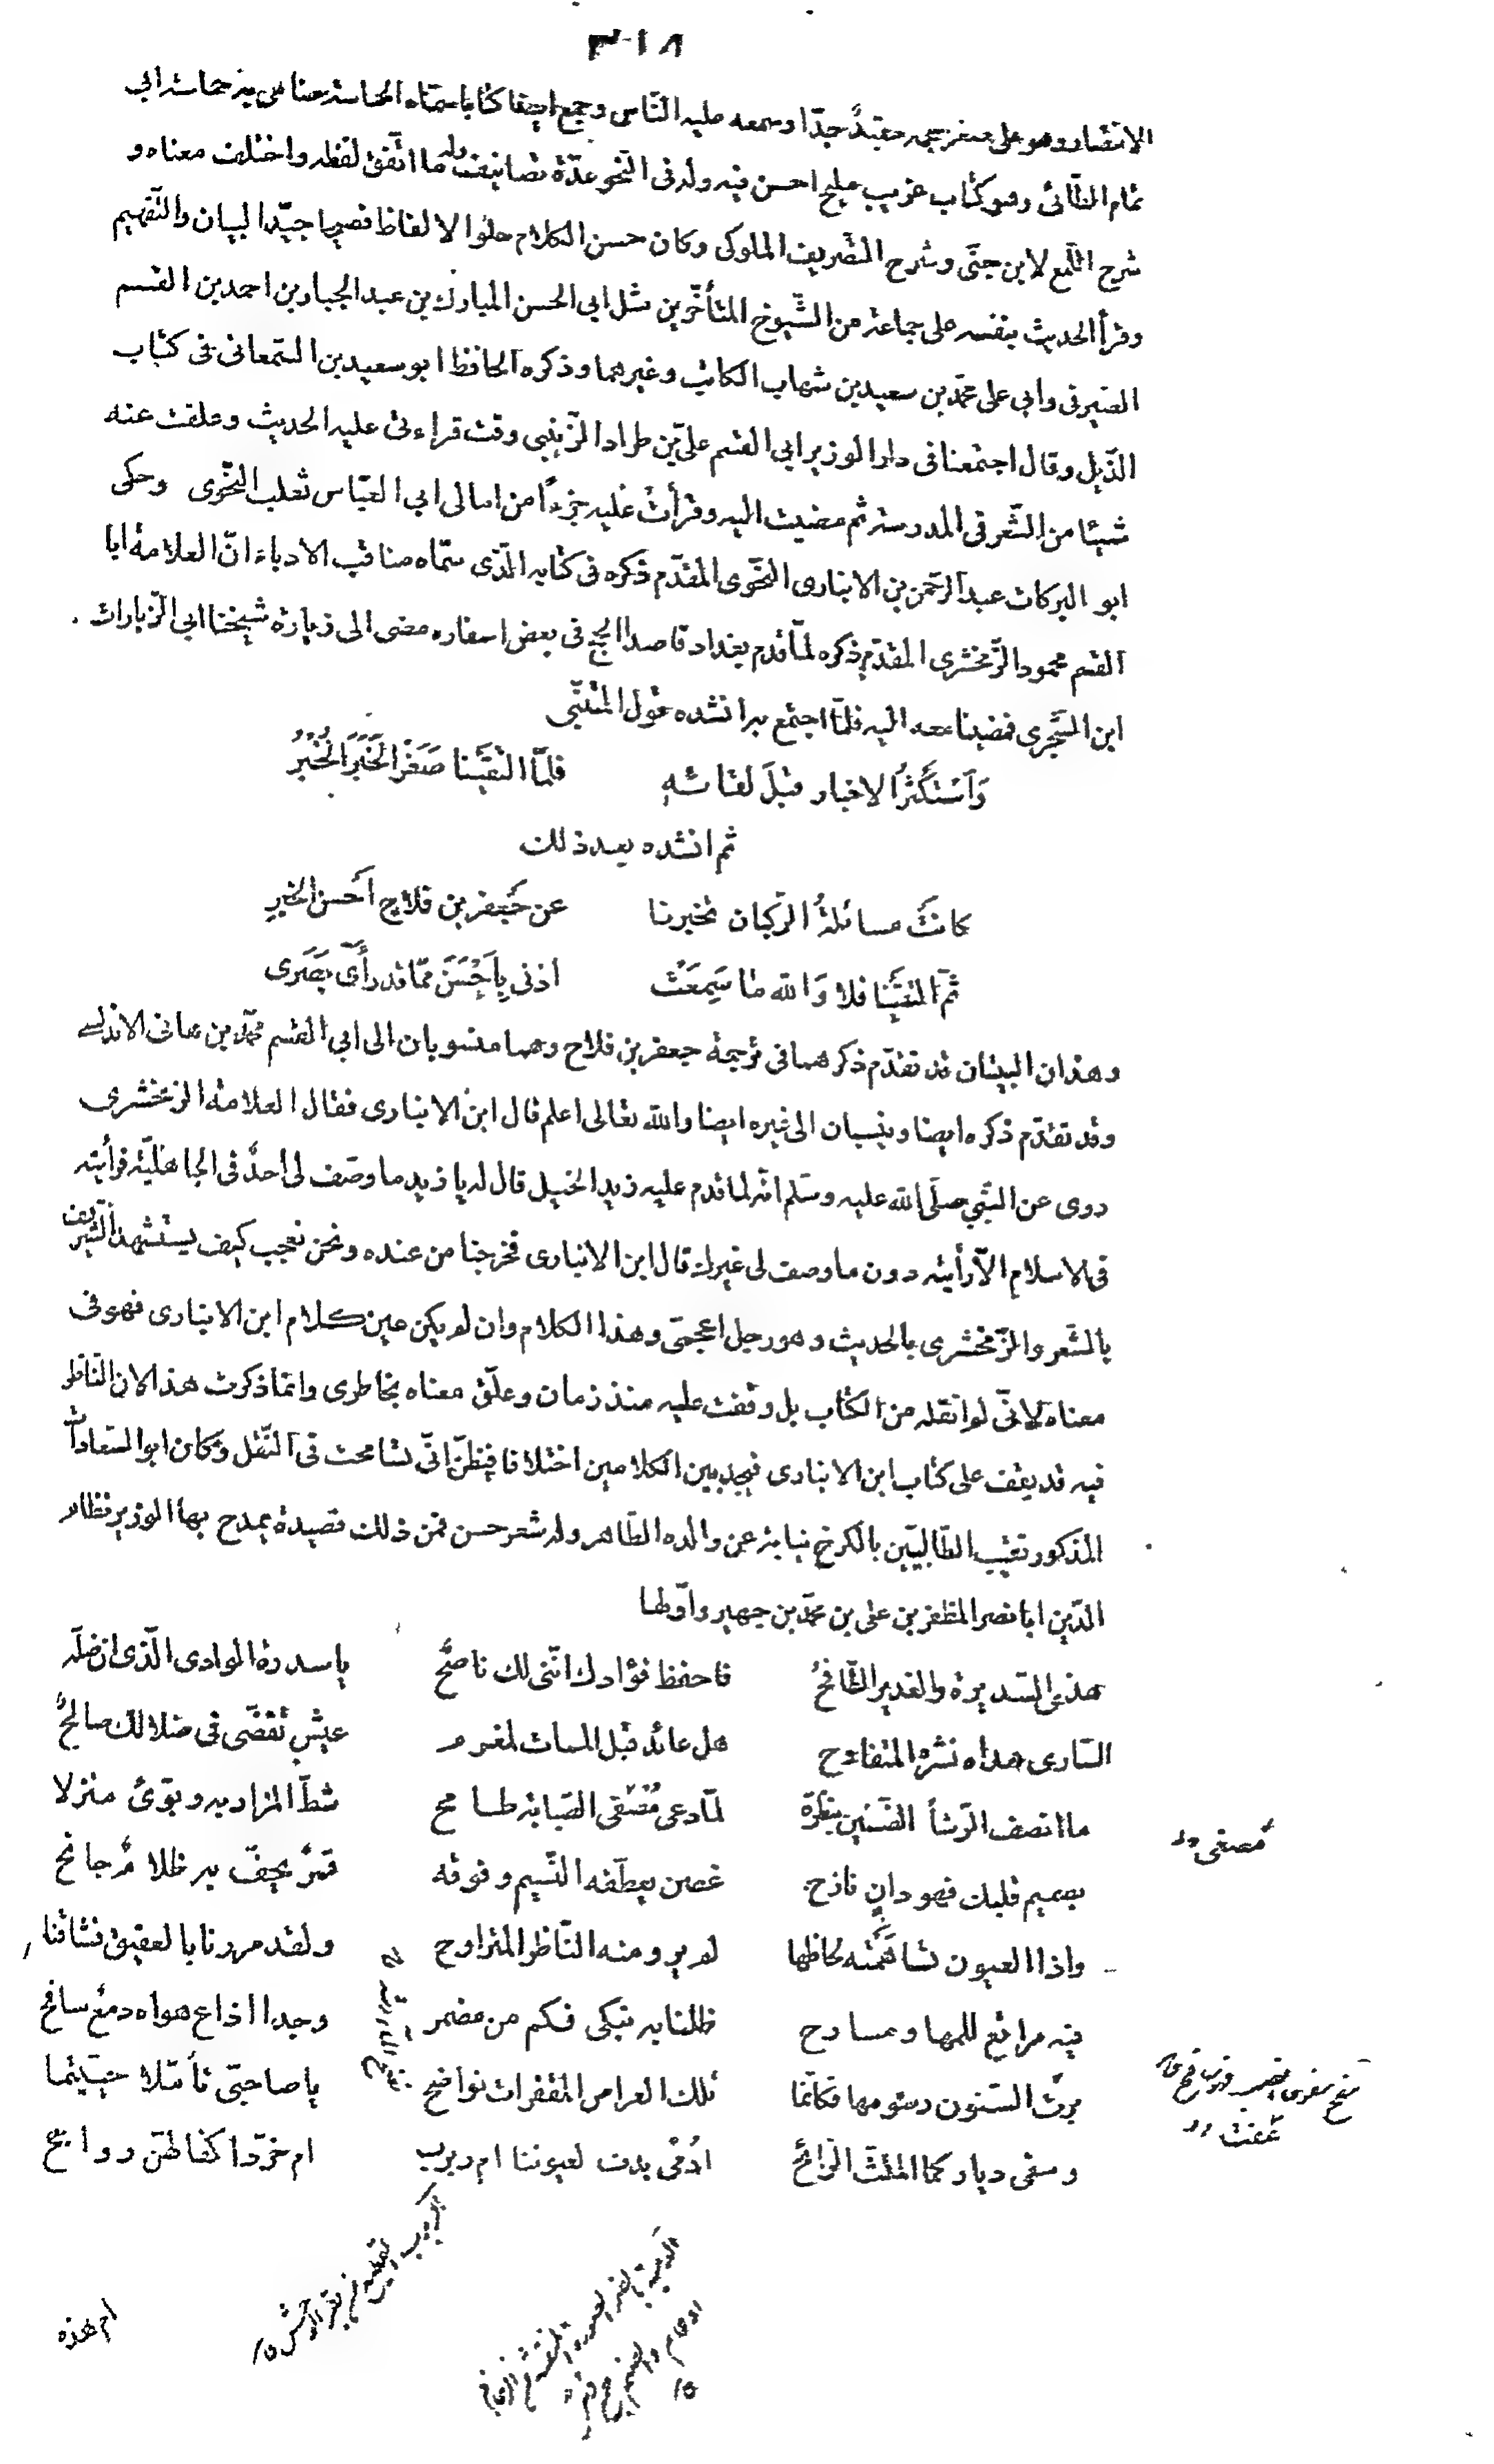 ٣١٨
الانتصار وهو على صغر حجمه مفيد جدّا وسمعه عليه النّاس وجمع ايضا كتابا سمّاه الحماسة ضاهى به حماسة ابى
تمام الطّائى وهو كتاب غريب مليح احسن فيه وله فى النّحو عدّة تصانيف وله ما اتّفق لفظه واختلف معناه و
شرح اللّمع لابن جنّى وشرح التّصريف الملوكى وكان حسن الكلام حلو الالفاظ فصيحا جيّد البيان والتّفهيم
وقرأ الحديث بنفسه على جماعة من الشّيوخ المتأخّرين مثل ابى الحسن المبارك بن عبد الجبار بن احمد بن القسم
الصّيرفى وابى على محمّد بن سعيد بن شهاب الكاتب وغيرهما وذكره الحافظ ابو سعيد بن السّمعانى فى كتاب
الذّيل وقال اجتمعنا فى دار الوزير ابى القسم علىّ بن طراد الزّينبى وقت قراءتى عليه الحديث وعلقت عنه
شيئا من الشّعر فى المدرسة ثم مضيت اليه وقرأت عليه جزءًا من امالى ابى العبّاس ثعلب النّحوى وحكى
ابو البركات عبد الرّحمن بن الانبارى النّحوى المقدّم ذكره فى كتابه الّذى سمّاه مناقب الادباء انّ العلامة ابا
القسم محمود الزّمخشرى المقدّم ذكره لمّا قدم بغداد قاصدا الحج فى بعض اسفاره مضى الى زيارة شيخنا ابى الزيارات
ابن الشّجرى فمضينا معه اليه فلمّا اجتمع به انشده قول المتنبّى
وَاَسْتَكْثِرُ الاخبار قبلَ لقائه فلمّا التقَيْنا صَغَّرَ الخَبَرَ الخُبْرُ
ثم انشده بعد ذلك
كانتْ مسائلةُ الرّكبان تخبرنا عن جَعفر بن فلاحٍ اَحسنَ الخبرِ
ثمّ التقَيْنا فلا وَالله ما سَمِعَتْ اذنى بِاَحْسَنَ ممّا قد رأَى بَصَرى
وهذان البيتان قد تقدّم ذكرهما فى ترجمة جعفر بن فلاح وهما منسوبان الى ابى القسم محمّد بن هانى الاندلسى
وقد تقدّم ذكره ايضا وينسبان الى غيره ايضا والله تعالى اعلم قال ابن الانبارى فقال العلامة الزمخشرى
روى عن النّبى صلّى الله عليه وسلم انّه لما قدم عليه زيد الخيل قال له يا زيد ما وصف لى احدٌ فى الجاهليّة فرأيته
فى الاسلام الّا رأيته دون ما وصف لى غيرك قال ابن الانبارى فخرجنا من عنده ونحن نعجب كيف يستشهد الشريف
بالشّعر والزّمخشرى بالحديث وهو رجل اعجمىّ وهذا الكلام وان لم يكن عين كلام ابن الانبارى فهو فى
معناه لانّى لم انقله من الكتاب بل وقفت عليه منذ زمان وعلّق معناه بخاطرى وانّما ذكرت هذا لان النّاظر
فيه قد يقف على كتاب ابن الانبارى فيجد بين الكلامين اختلافا فيظنّ انّى تسامحت فى النّقل وكان ابو السّعادات
المذكور نقيب الطّالبيّين بالكرخ نيابة عن والده الطّاهر وله شعر حسن فمن ذلك قصيدة يمدح بها الوزير نظام
الدّين ابا نصر المظفر بن على بن محمّد بن جهير واوّلها
هذى السّديرة والغدير الطّافحُ فاحفظ فؤادك انّنى لك ناصحُ يا سدرة الوادى الّذى ان ضلّه
السّارى هداه نشره المتفاوح هل عائد قبل الممات لمغرم عيش تقضّى فى ضلالك صالحُ
ما انصف الرّشأ الضّنين بنظرة لمّا دعى مُصغى الصّبابة طامح شطّ المزار به وبوّئ منزلا
بصميم قلبك فهو دانٍ نازح غصن يعطّفه النّسيم وفوقه قمرٌ يحفّ به ظلام جانح
واذا العيون تساهَمَتْه لحاظها لم يرو منه النّاظر المتراوح ولقد مررنا بالعقيق فشاقنا
فيه مراتع للمها ومسارح ظلنا به نبكى فكم من مضمر وجدا اذاع هواه دمع سافح
برت السّنون رسومها فكأنّما تلك العراص المقفرات نواضح يا صاحبىّ تأمّلا حيّيتما
وسقى دياركما الملثّ الرّائح اَدُمًى بدت لعيوننا ام ربرب ام خرّد اكفالهنّ رواجح
ام هذه